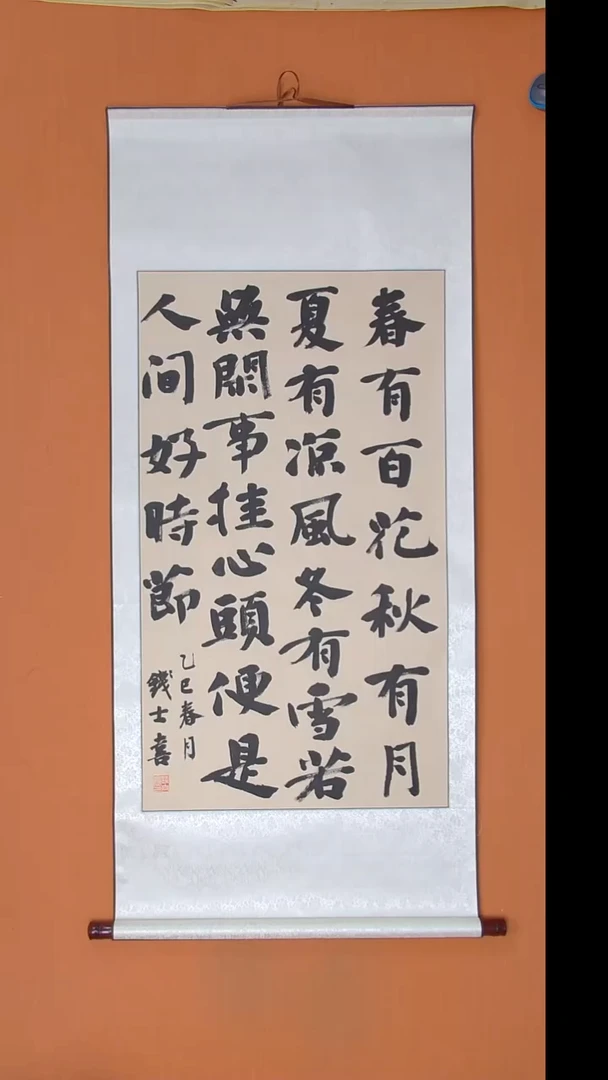 春有百花秋有月
夏有凉風冬有雪若
無閑事挂心頭便是
人间好時節
乙巳春月
錢士喜